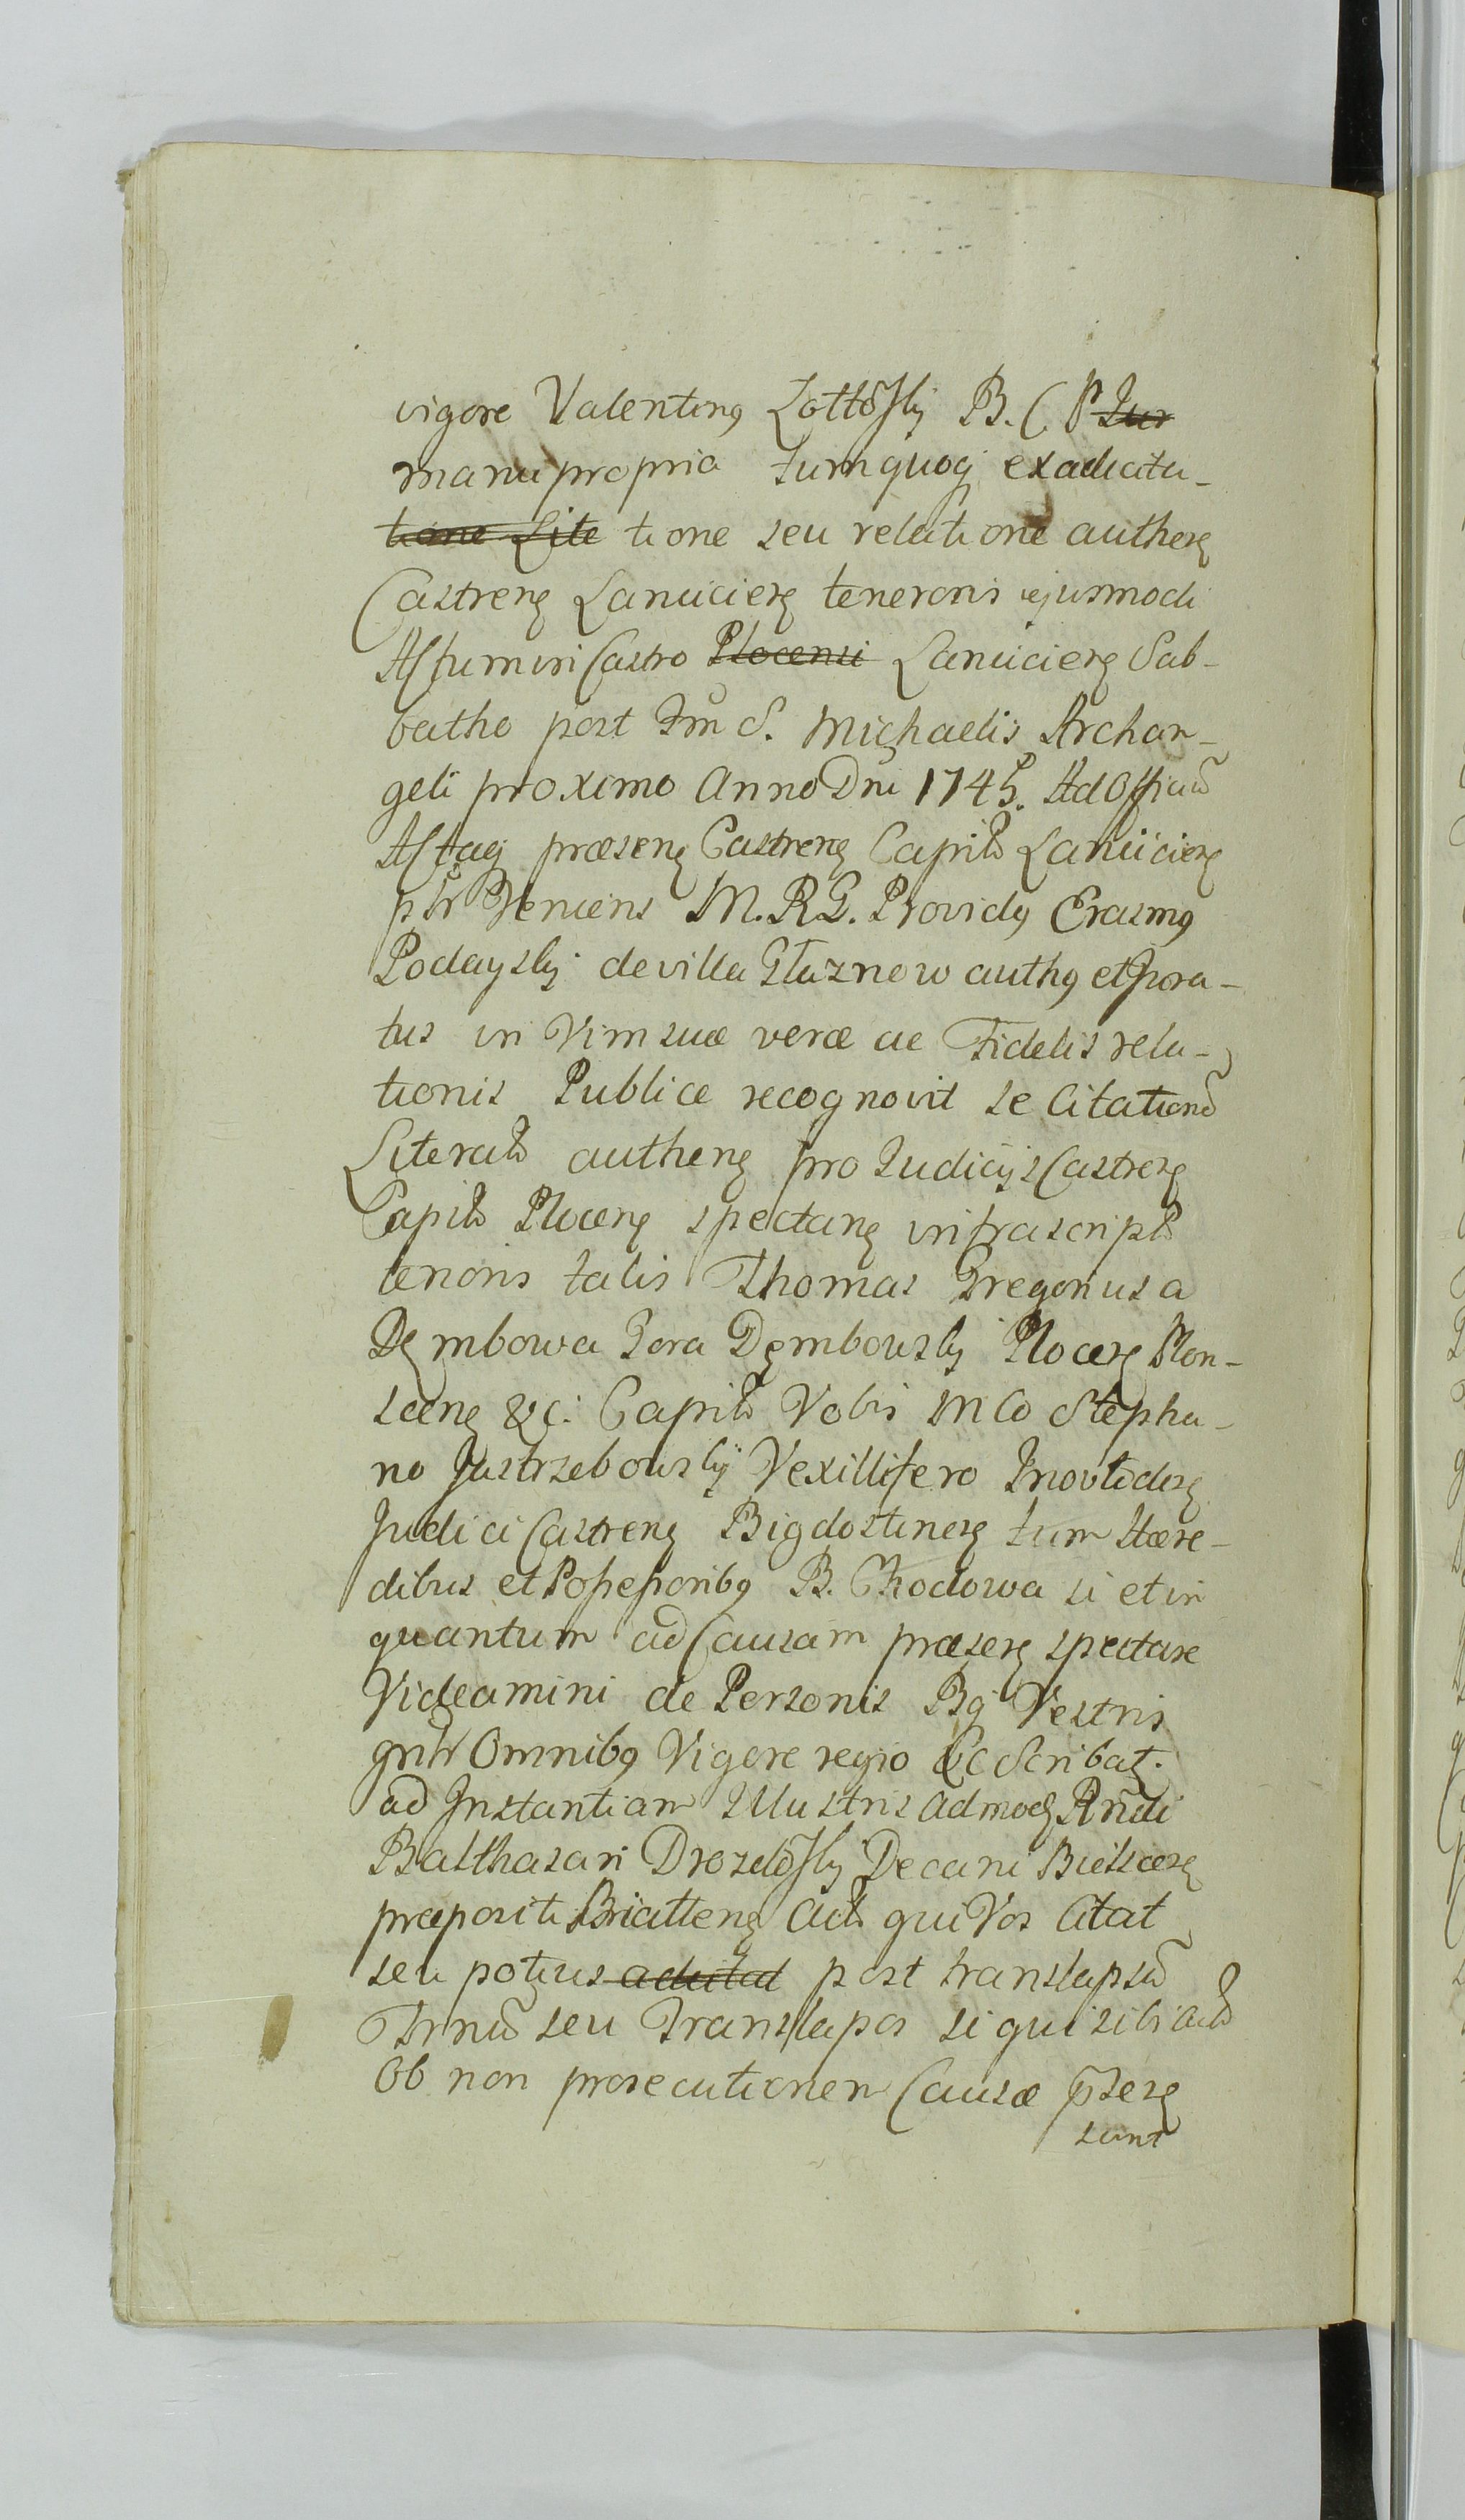 vigore Valentinꝯ Lottõsky B. C. P Jur
manu propria tumquoqꝫ exadcita-
tione Lite tione seu relatione authenꝫ
Castrenꝫ Lanciciens tenoris ejusmodi
Actum in Castro Plocensi Lanciciens Sab-
batho post Fm S. Michaelis Archan-
geli proximo Anno Dni 1745. Ad Officiũ
Actaqꝫ præsenꝫ Castrenꝫ Capitł Lanciciens
pltr Veniens M. R. G. Providꝯ Erasmꝯ
Podayski de villa Głaznow authꝯ et Jura-
tus in Vim suæ veræ ac Fidelis rela-
tionis Publice recognovit se Citationẽ
Literalẽ authenꝫ pro Judicijs Castrenꝫ
Capitł Plocenꝫ spectanꝫ infrascriptẽ
tenoris talis Thomas Gregorius a
Dęmbowa Gora Dęmbowsky Plocenꝫ Płon-
scenꝫ &c: Capitł Vobis M Co Stepha-
no Jastrzebowsky Vexillifero Inovlodenꝫ
Judici Castrenꝫ Bigdostinenꝫ tum Hære-
dibus et Possessoribꝯ B. Chodowa si et in
quantum ad Causam præsenꝫ spectare
Videamini de Personis Bqꝫ Vestris
gnlr Omnibꝯ Vigore regio &c Scribatꝫ.
ad Instantiam Illustris admodꝫ Rñdi
Balthasari Drozdõsky Decani Bielscenꝫ
præpositi Briattenꝫ Actł qui Vos Citat
seu potius adcitat post translapsũ
Trnũ seu Translapos si qui sibi Actł
Ob non prosecutionem Causæ p̃senꝫ
sunt